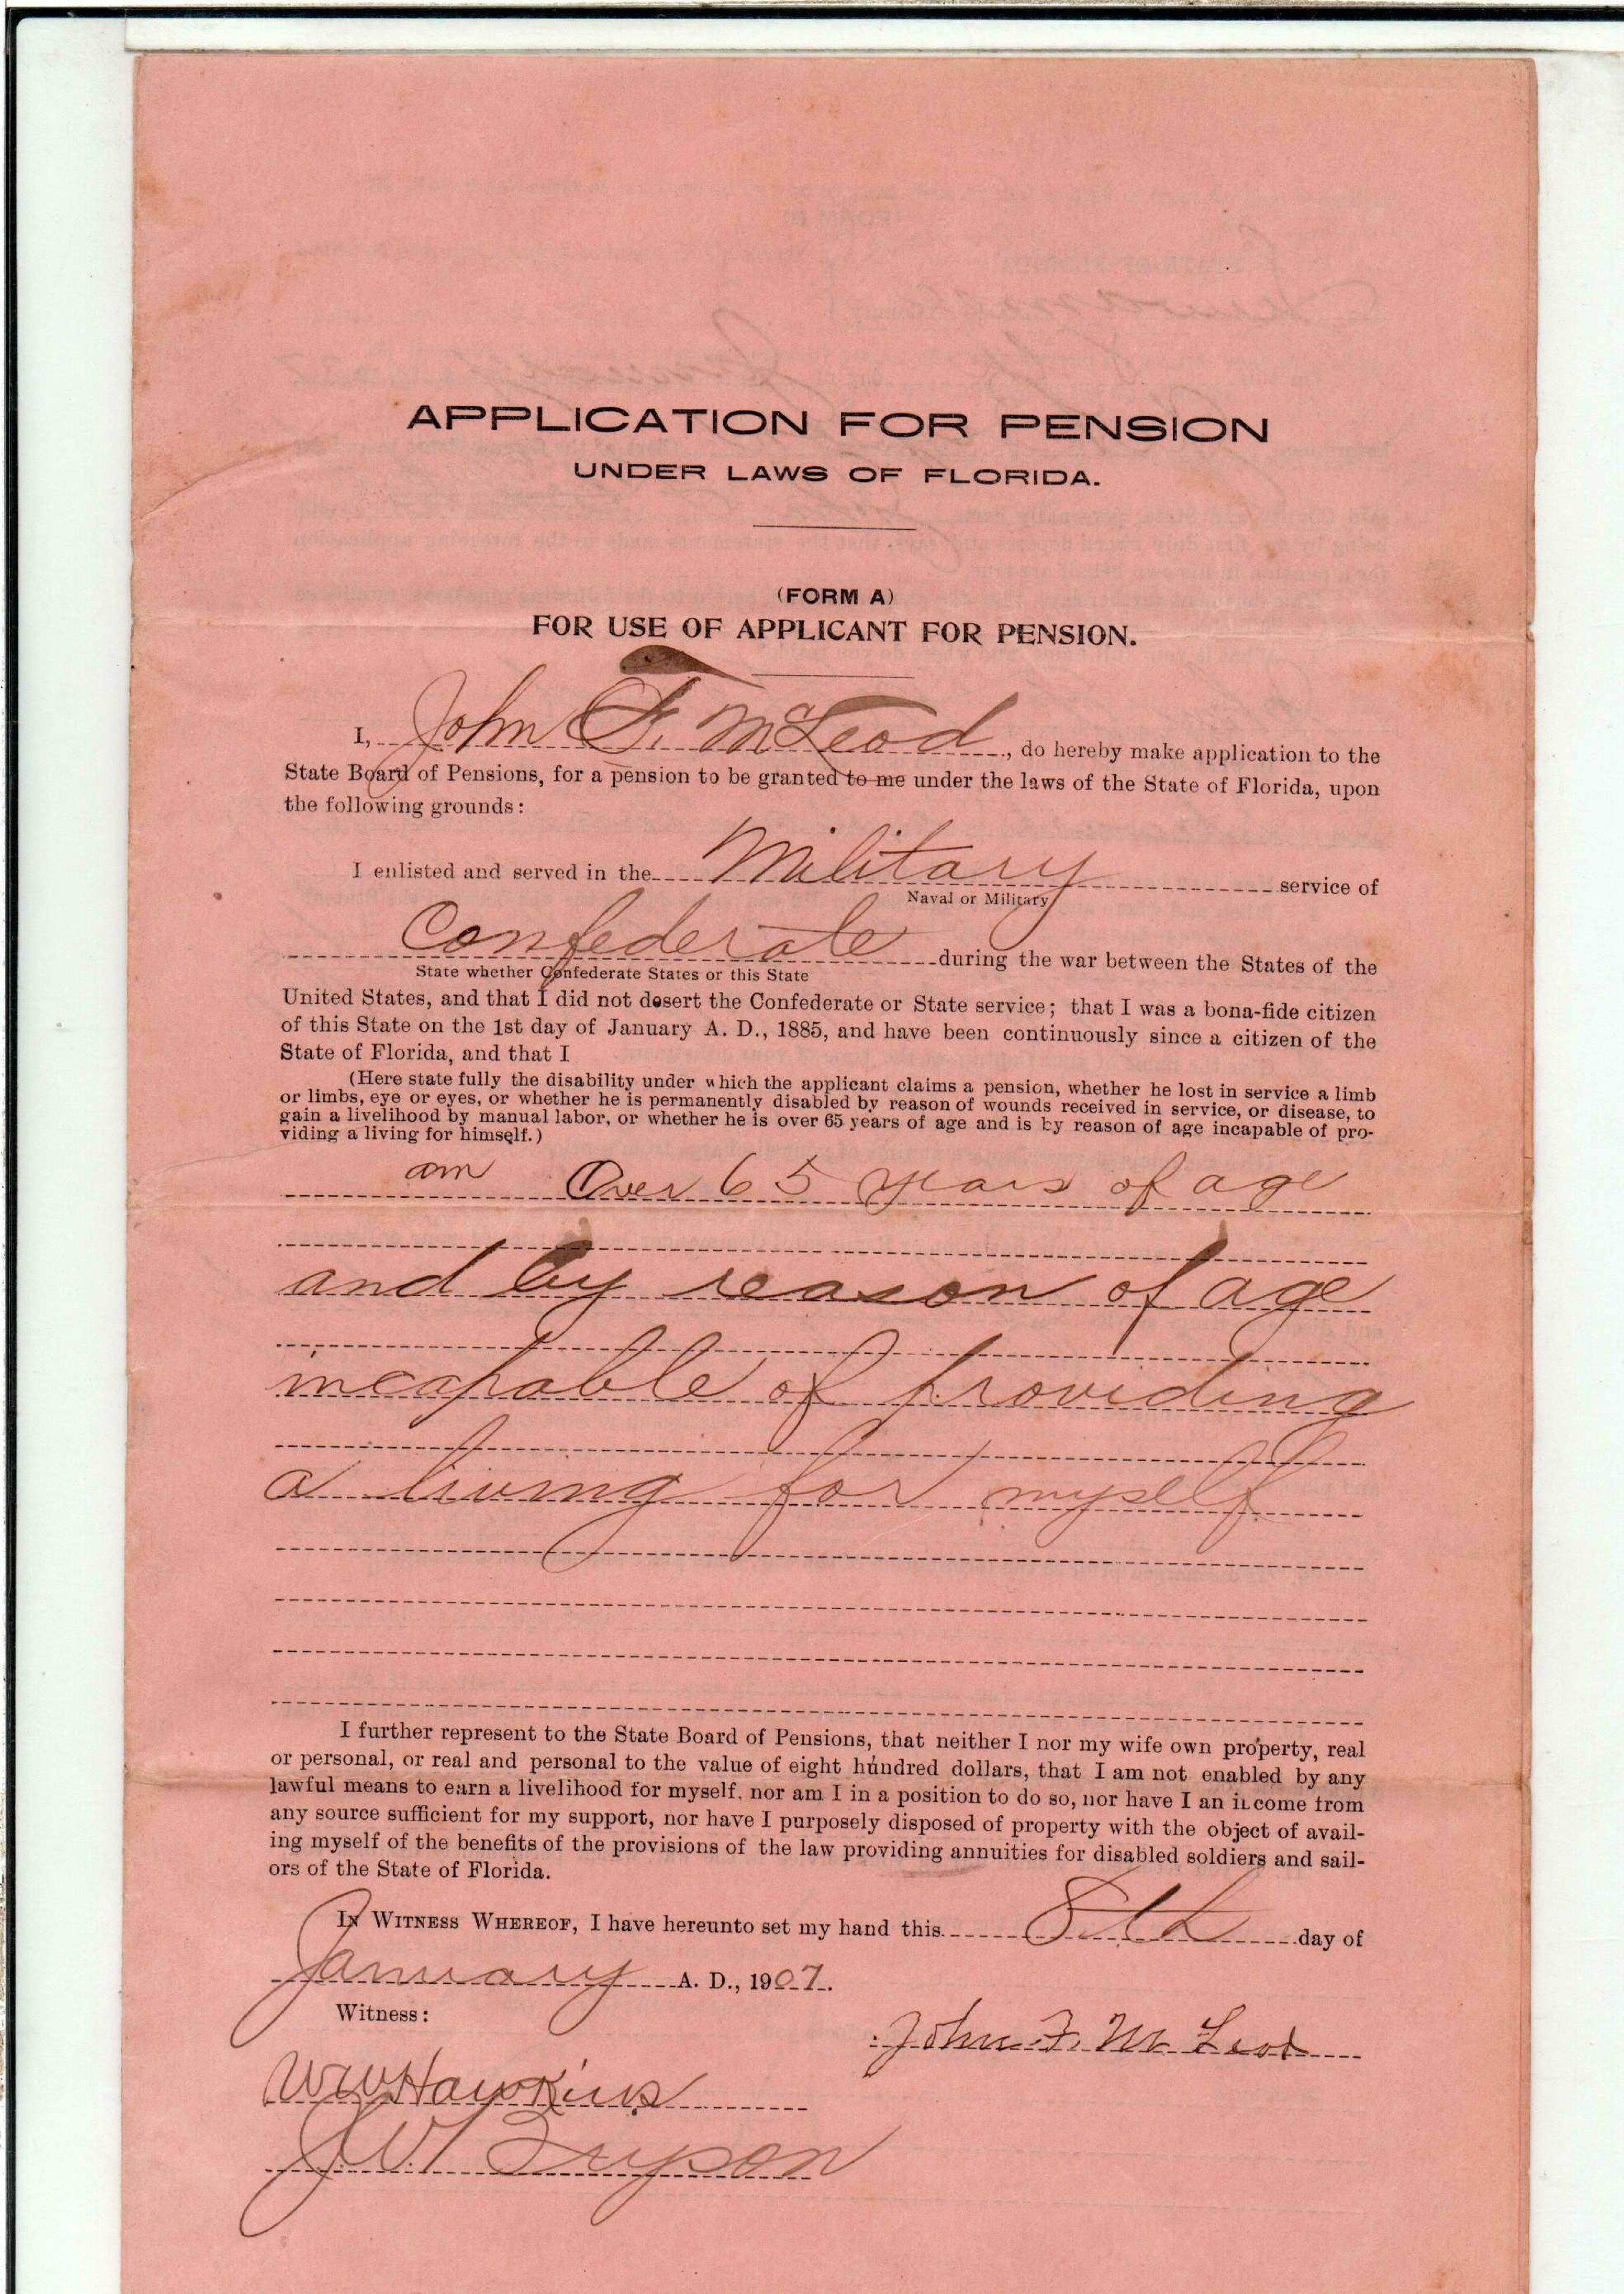 APPLICATION FOR PENSION
UNDER LAWS OF FLORIDA.
(FORM A)
FOR USE OF APPLICANT FOR PENSION.
I, John F. McLeod, do hereby make application to the
State Board of Pensions, for a pension to be granted to me under the laws of the State of Florida, upon
the following grounds:
I enlisted and served in the Military service of
Naval or Military
Confederate during the war between the States of the
State whether Confederate States or this State
United States, and that I did not desert the Confederate or State service; that I was a bona-fide citizen
of this State on the 1st day of January A. D., 1885, and have been continuously since a citizen of the
State of Florida, and that I
(Here state fully the disability under which the applicant claims a pension, whether he lost in service a limb
or limbs, eye or eyes, or whether he is permanently disabled by reason of wounds received in service, or disease, to
gain a livelihood by manual labor, or whether he is over 65 years of age and is by reason of age incapable of pro-
viding a living for himself.)
am Over 65 years of age
and by reason of age
incapable of providing
a living for myself
I further represent to the State Board of Pensions, that neither I nor my wife own property, real
or personal, or real and personal to the value of eight hundred dollars, that I am not enabled by any
lawful means to earn a livelihood for myself, nor am I in a position to do so, nor have I an income from
any source sufficient for my support, nor have I purposely disposed of property with the object of avail-
ing myself of the benefits of the provisions of the law providing annuities for disabled soldiers and sail-
ors of the State of Florida.
IN WITNESS WHEREOF, I have hereunto set my hand this 8th day of
January A. D., 1907.
Witness:
John F. McLeod
W W Hawkins
J W Bryson